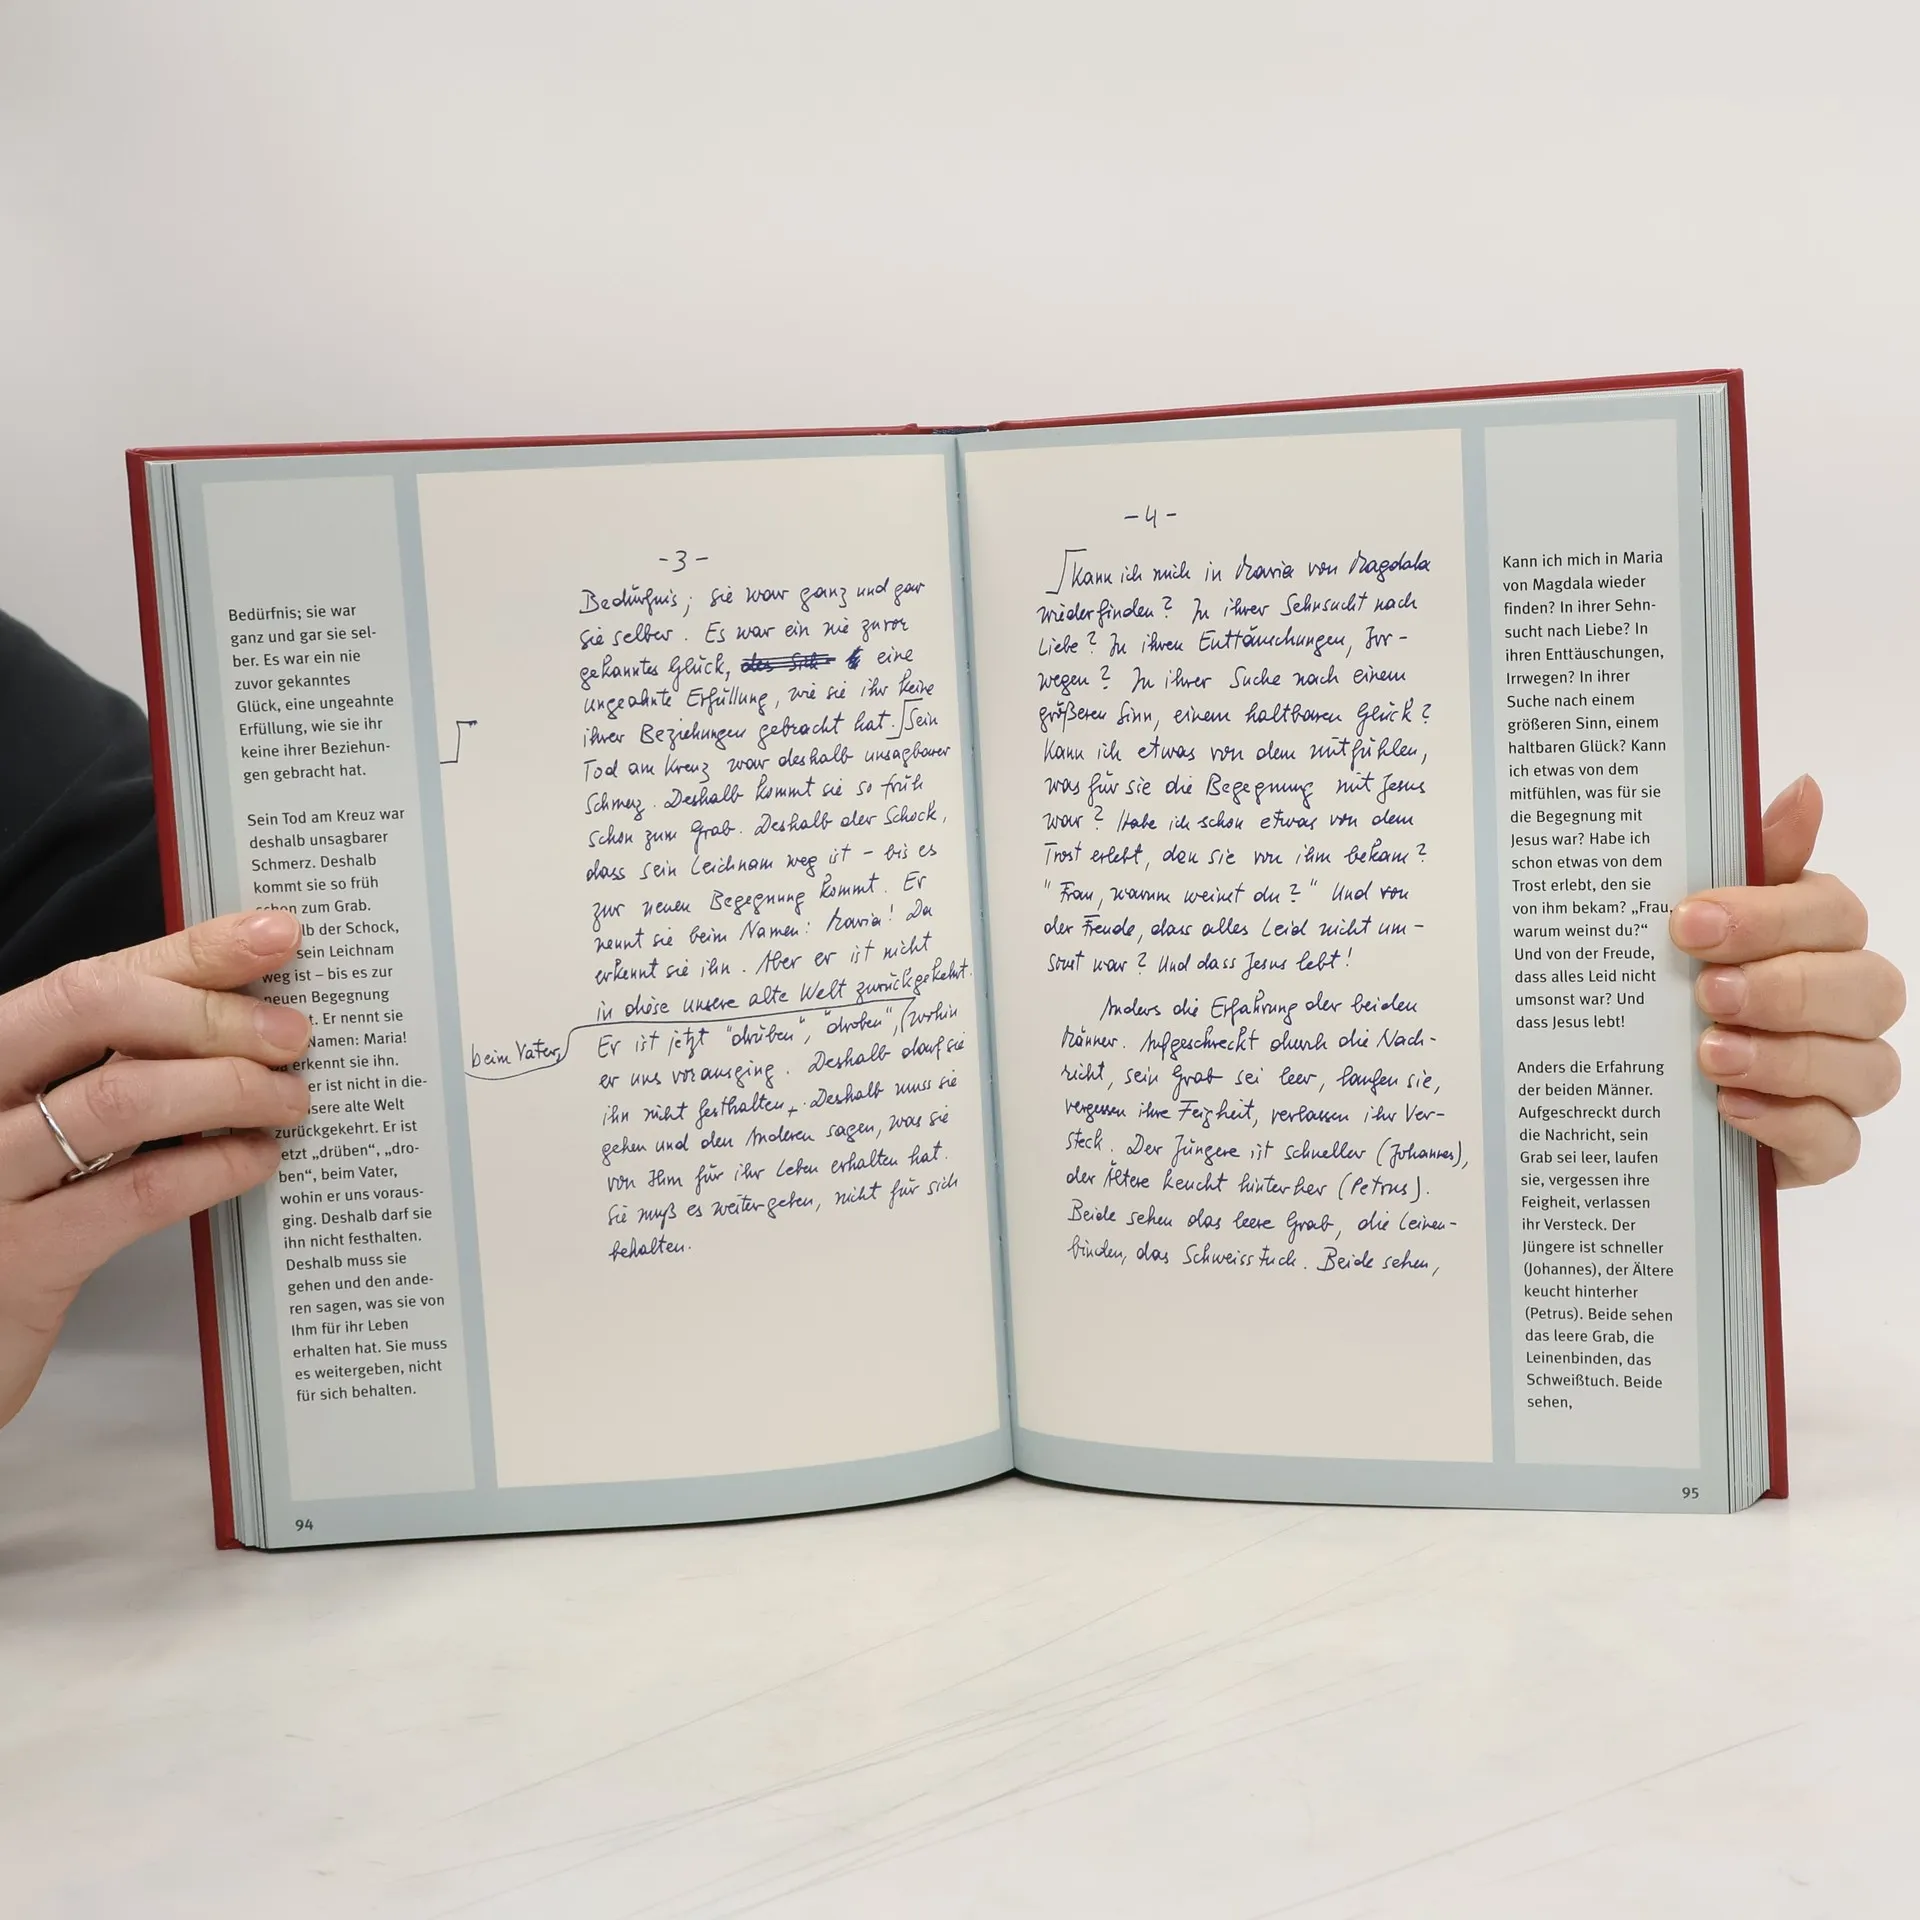 Bedürfnis; sie war
ganz und gar sie sel-
ber. Es war ein nie
zuvor gekanntes
Glück, eine ungeahnte
Erfüllung, wie sie ihr
keine ihrer Beziehun-
gen gebracht hat.
Sein Tod am Kreuz war
deshalb unsagbarer
Schmerz. Deshalb
kommt sie so früh
schon zum Grab.
der Schock,
sein Leichnam
weg ist – bis es zur
neuen Begegnung
Er nennt sie
Namen: Maria!
erkennt sie ihn.
er ist nicht in die-
alte Welt
zurückgekehrt. Er ist
jetzt „drüben“, „dro-
ben“, beim Vater,
wohin er uns voraus-
ging. Deshalb darf sie
ihn nicht festhalten.
Deshalb muss sie
gehen und den ande-
ren sagen, was sie von
Ihm für ihr Leben
erhalten hat. Sie muss
es weitergeben, nicht
für sich behalten.
94
-3-
Bedürfnis; sie war ganz und gar
sie selber. Es war ein nie zuvor
gekanntes Glück, eine
ungeahnte Erfüllung, wie sie ihr keine
ihrer Beziehungen gebracht hat. Sein
Tod am Kreuz war deshalb unsagbarer
Schmerz. Deshalb kommt sie so früh
schon zum Grab. Deshalb der Schock,
dass sein Leichnam weg ist – bis es
zur neuen Begegnung kommt. Er
nennt sie beim Namen: Maria! Da
erkennt sie ihn. Aber er ist nicht
in diese unsere alte Welt zurückgekehrt.
Er ist jetzt "drüben", "droben", wohin
beim Vater,
er uns vorausging. Deshalb darf sie
ihn nicht festhalten. Deshalb muss sie
gehen und den Anderen sagen, was sie
von Ihm für ihr Leben erhalten hat.
Sie muß es weitergeben, nicht für sich
behalten.
-4-
Kann ich mich in Maria von Magdala
wiederfinden? In ihrer Sehnsucht nach
Liebe? In ihren Enttäuschungen, Irr-
wegen? In ihrer Suche nach einem
größeren Sinn, einem haltbaren Glück?
Kann ich etwas von dem mitfühlen,
was für sie die Begegnung mit Jesus
war? Habe ich schon etwas von dem
Trost erlebt, den sie von ihm bekam?
"Frau, warum weinst du?" Und von
der Freude, dass alles Leid nicht um-
sonst war? Und dass Jesus lebt!
Anders die Erfahrung der beiden
Männer. Aufgeschreckt durch die Nach-
richt, sein Grab sei leer, laufen sie,
vergessen ihre Feigheit, verlassen ihr Ver-
steck. Der Jüngere ist schneller (Johannes),
der Ältere keucht hinterher (Petrus).
Beide sehen das leere Grab, die Leinen-
binden, das Schweisstuch. Beide sehen,
Kann ich mich in Maria
von Magdala wieder
finden? In ihrer Sehn-
sucht nach Liebe? In
ihren Enttäuschungen,
Irrwegen? In ihrer
Suche nach einem
größeren Sinn, einem
haltbaren Glück? Kann
ich etwas von dem
mitfühlen, was für sie
die Begegnung mit
Jesus war? Habe ich
schon etwas von dem
Trost erlebt, den sie
von ihm bekam? „Frau,
warum weinst du?“
Und von der Freude,
dass alles Leid nicht
umsonst war? Und
dass Jesus lebt!
Anders die Erfahrung
der beiden Männer.
Aufgeschreckt durch
die Nachricht, sein
Grab sei leer, laufen
sie, vergessen ihre
Feigheit, verlassen
ihr Versteck. Der
Jüngere ist schneller
(Johannes), der Ältere
keucht hinterher
(Petrus). Beide sehen
das leere Grab, die
Leinenbinden, das
Schweißtuch. Beide
sehen,
95